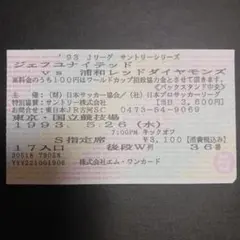 '93 Jリーグ サントリーシリーズ
ジェフユナイテッド
vs 浦和レッドダイヤモンズ
本料金のうち100円はワールドカップ招致協会
《バックスタンド中央》
主催:(財)日本サッカー協会/(社)日本プロサッカーリーグ
特別協賛:サントリー株式会社 【当日 3,600円】
問合せ:東日本JR古河SC 0473-54-9069
東京・国立競技場
1993. 5.26(水)
7:00PM キックオフ
S指定席 ¥3,100 [消費税込み]
17入口 後段W列 36番
株式会社エム・ワンカード